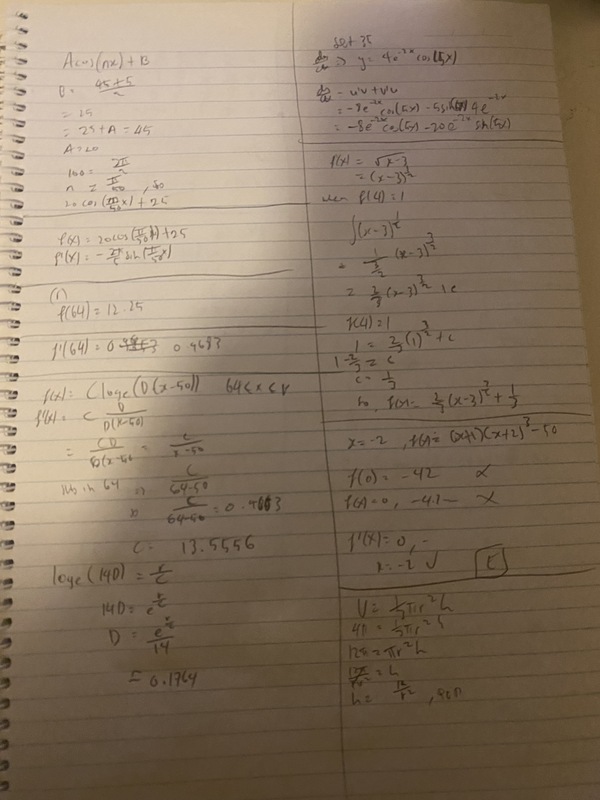 A cos(nx) + B
B = (45+5)/2
= 25
= 25 + A = 45
A = 20
100 = 2π/n
n = π/50 , so
20 cos(π/50 x) + 25
f(x) = 20 cos(π/50 x) + 25
f'(x) = -2π/5 sin(π/50 x)
f(64) = 12.25
f'(64) = 0.4683
f(x) = C loge(D(x-50)) 64 ≤ x ≤
f'(x) = C D/(D(x-50))
= CD/(D(x-50)) = C/(x-50)
in 64 ⇒ C/(64-50)
C/(64-50) = 0.4683
C = 13.5556
loge(14D) =
14D =
D =
= 0.1764
Set 35
dy/dx ⇒ y = 4e^(-2x) cos(5x)
dy/dx = u'v + v'u
= -8e^(-2x) cos(5x) - 5 sin(5x) 4e^(-2x)
= -8e^(-2x) cos(5x) - 20e^(-2x) sin(5x)
f'(x) = √(x-3)
= (x-3)^(1/2)
when f(4) = 1
∫(x-3)^(1/2)
= 1/(3/2) (x-3)^(3/2)
= 2/3 (x-3)^(3/2) + c
f(4) = 1
1 = 2/3 (1)^(3/2) + c
1 - 2/3 = c
c = 1/3
So, f(x) = 2/3 (x-3)^(3/2) + 1/3
x = -2 , f(x) = (x+1)(x+2)^3 - 50
f(0) = -42 ×
f(x) = 0, -4.1- ×
f'(x) = 0, -
x = -2 ✓ E
V = 1/3 πr²h
4π = 1/3 πr²h
12π = πr²h
12π/πr² = h
h = 12/r² ,